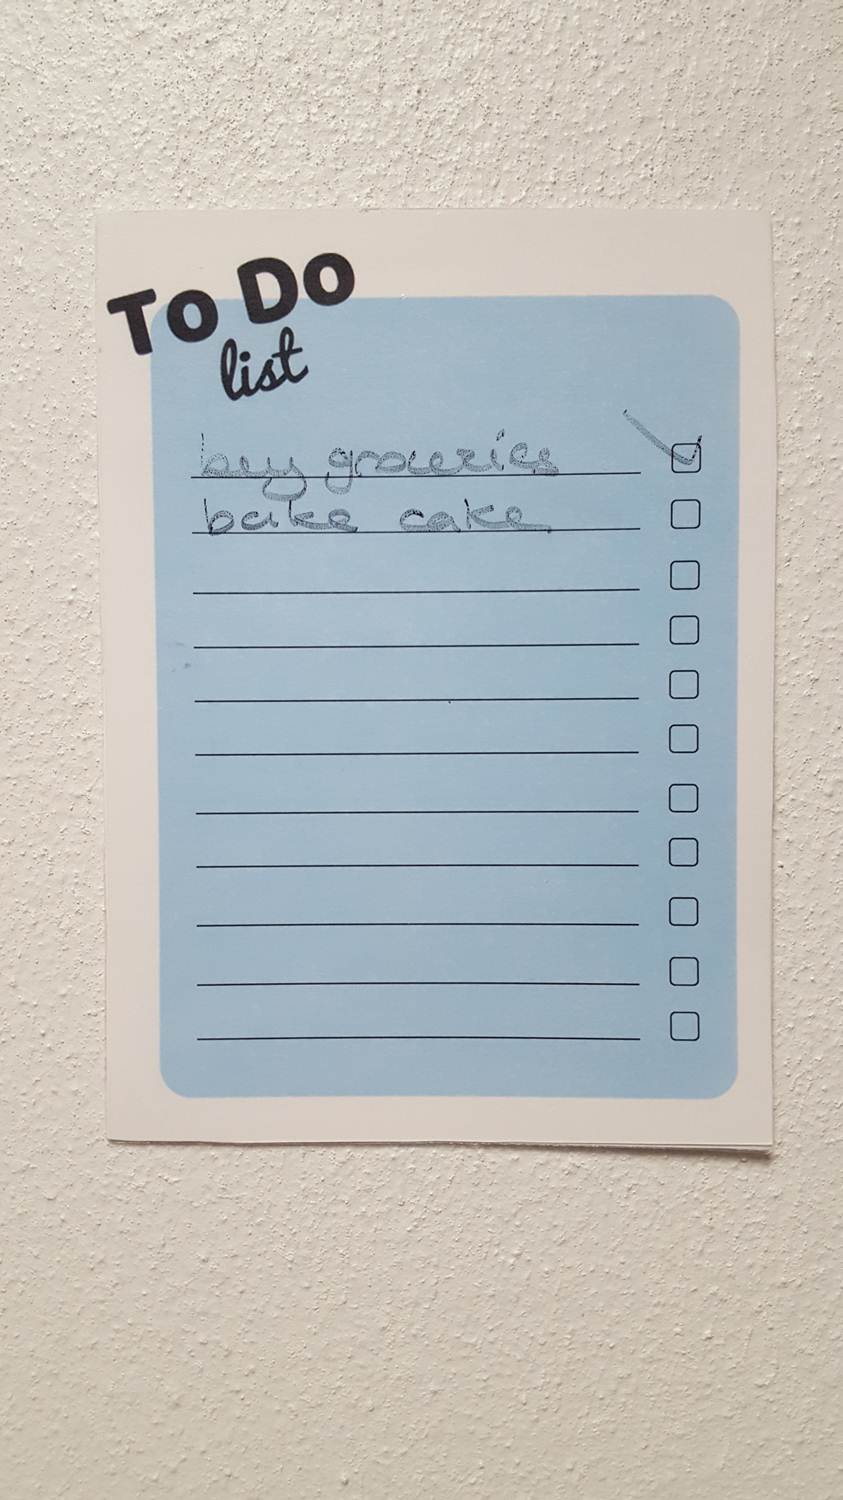 To Do
list
buy groceries
bake cake